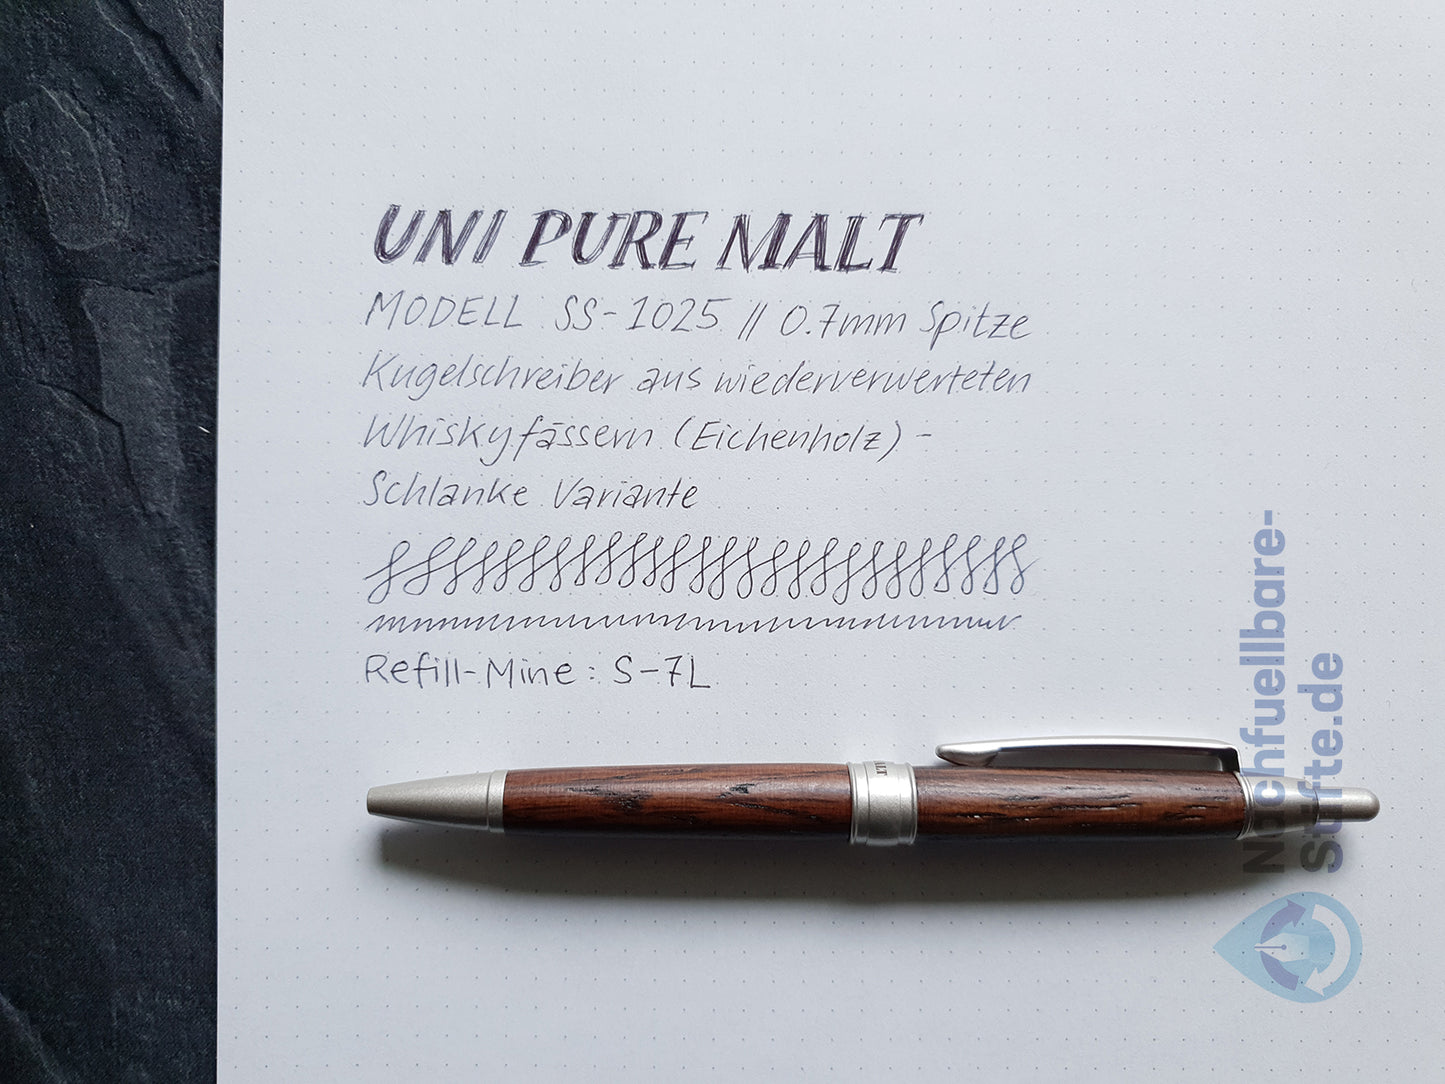 UNI PURE MALT
MODELL SS-1025 // 0.7mm Spitze
Kugelschreiber aus wiederverwerteten
Whiskyfässern (Eichenholz) -
Schlanke Variante
Refill-Mine: S-7L
Nachfuellbare-
Stifte.de